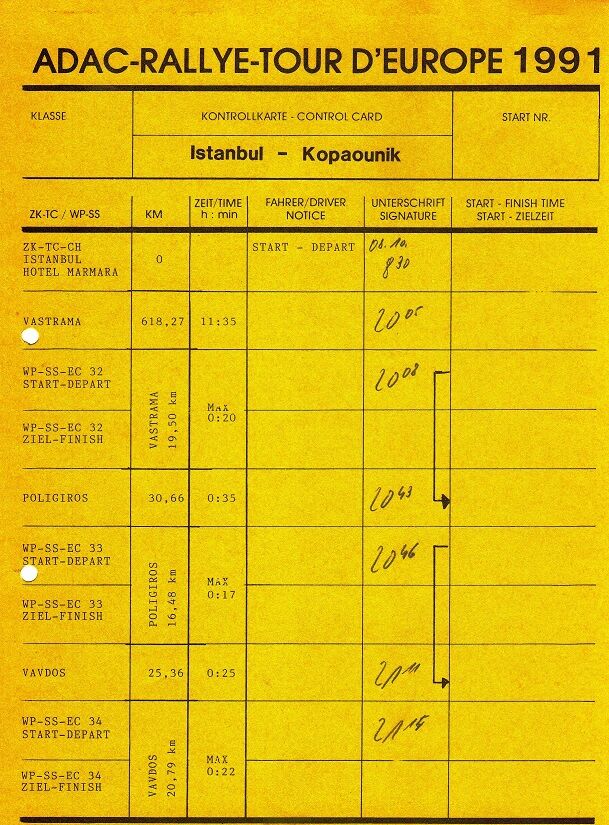 ADAC-RALLYE-TOUR D'EUROPE 1991
KLASSE
KONTROLLKARTE - CONTROL CARD
START NR.
Istanbul - Kopaounik
ZK-TC / WP-SS
KM
ZEIT/TIME
h : min
FAHRER/DRIVER
NOTICE
UNTERSCHRIFT
SIGNATURE
START - FINISH TIME
START - ZIELZEIT
ZK-TC-CH
ISTANBUL
HOTEL MARMARA
0
START - DEPART
08. 10.
8 30
VASTRAMA
618,27
11:35
20 05
WP-SS-EC 32
START-DEPART
VASTRAMA
19,50 km
MAX
0:20
20 08
WP-SS-EC 32
ZIEL-FINISH
POLIGIROS
30,66
0:35
20 43
WP-SS-EC 33
START-DEPART
POLIGIROS
16,48 km
MAX
0:17
20 46
WP-SS-EC 33
ZIEL-FINISH
VAVDOS
25,36
0:25
21 11
WP-SS-EC 34
START-DEPART
VAVDOS
20,79 km
MAX
0:22
21 15
WP-SS-EC 34
ZIEL-FINISH